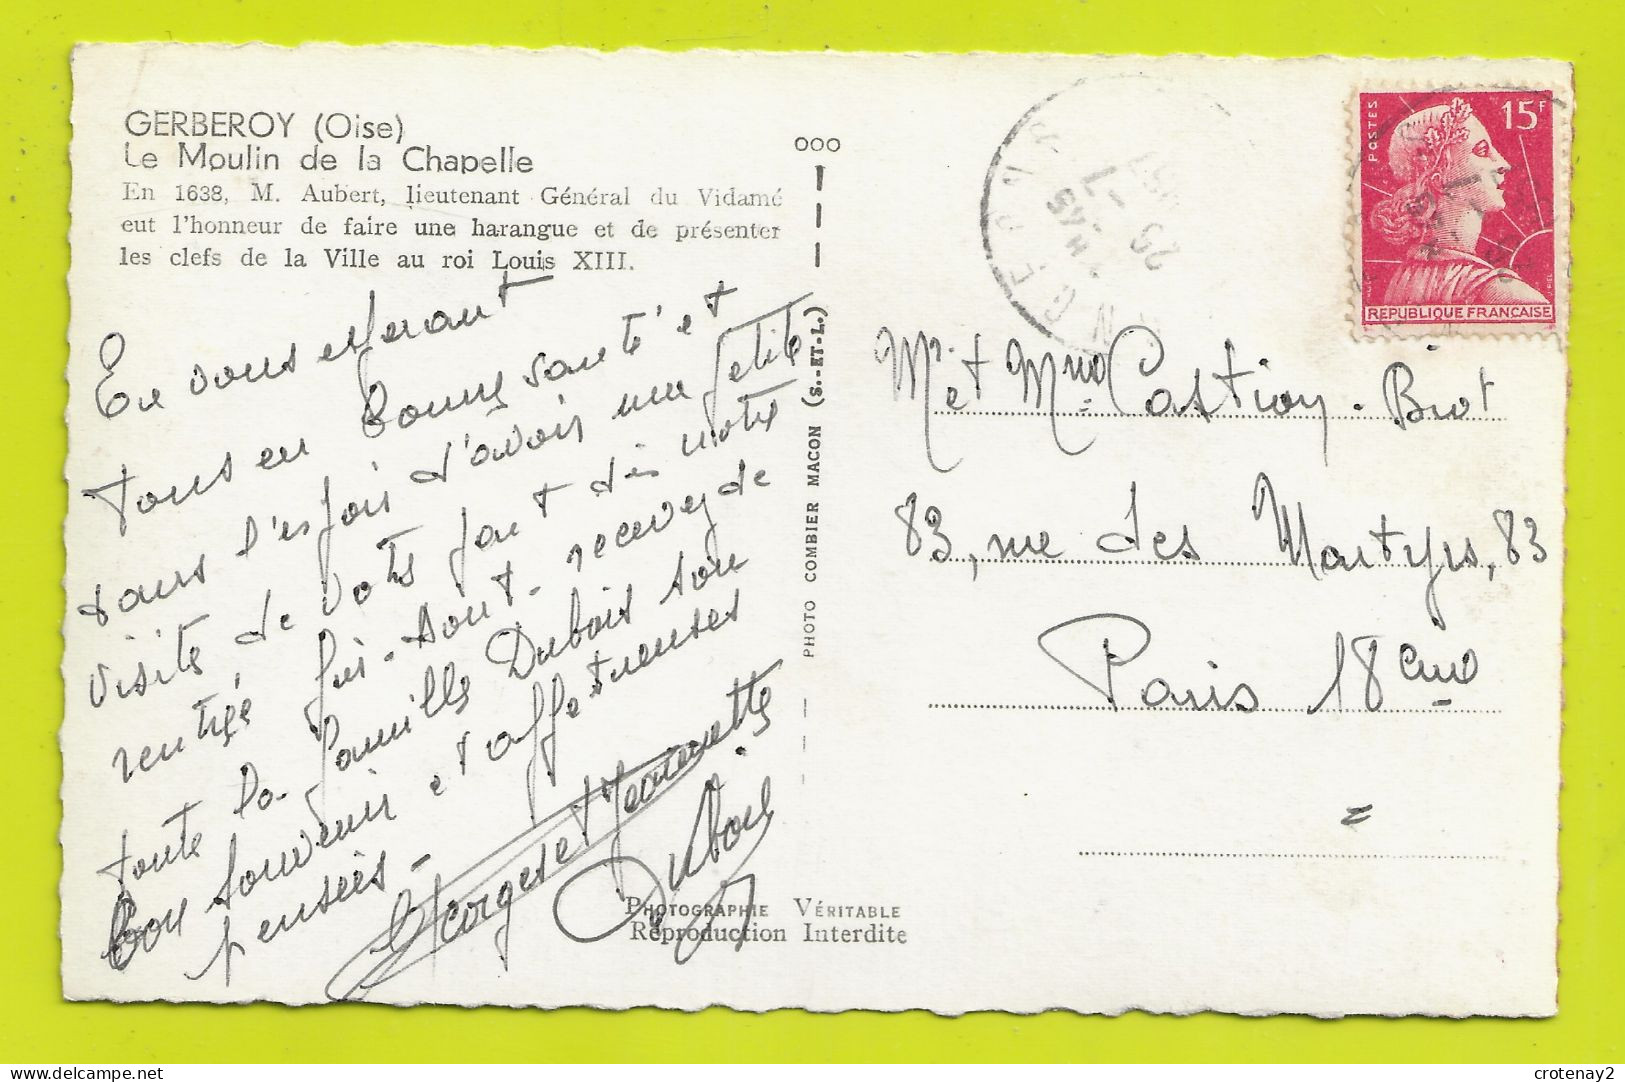 GERBEROY (Oise)
Le Moulin de la Chapelle
En 1638, M. Aubert, lieutenant Général du Vidamé
eut l'honneur de faire une harangue et de présenter
les clefs de la Ville au roi Louis XIII.
En vous espérant
tous en bonne santé et
dans l'espoir d'avoir une petite
visite de votre part dès votre
rentrée recevez de
toute la famille Dubois son
bon souvenir et affectueuses
pensées -
Georges et Jeannette
Dubois
PHOTOGRAPHIE VÉRITABLE
Reproduction Interdite
ooo
PHOTO COMBIER MACON (S.-ET-L.)
25 -7
POSTES
15F
REPUBLIQUE FRANÇAISE
Mr et Mme Castion - Biot
83, rue des Martyrs, 83
Paris 18eme
crotenay2